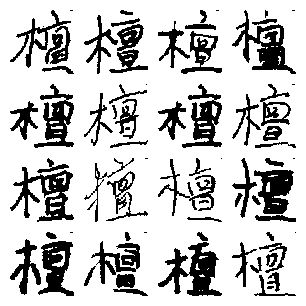 檀檀檀檀
檀檀檀檀
檀檀檀檀
檀檀檀檀